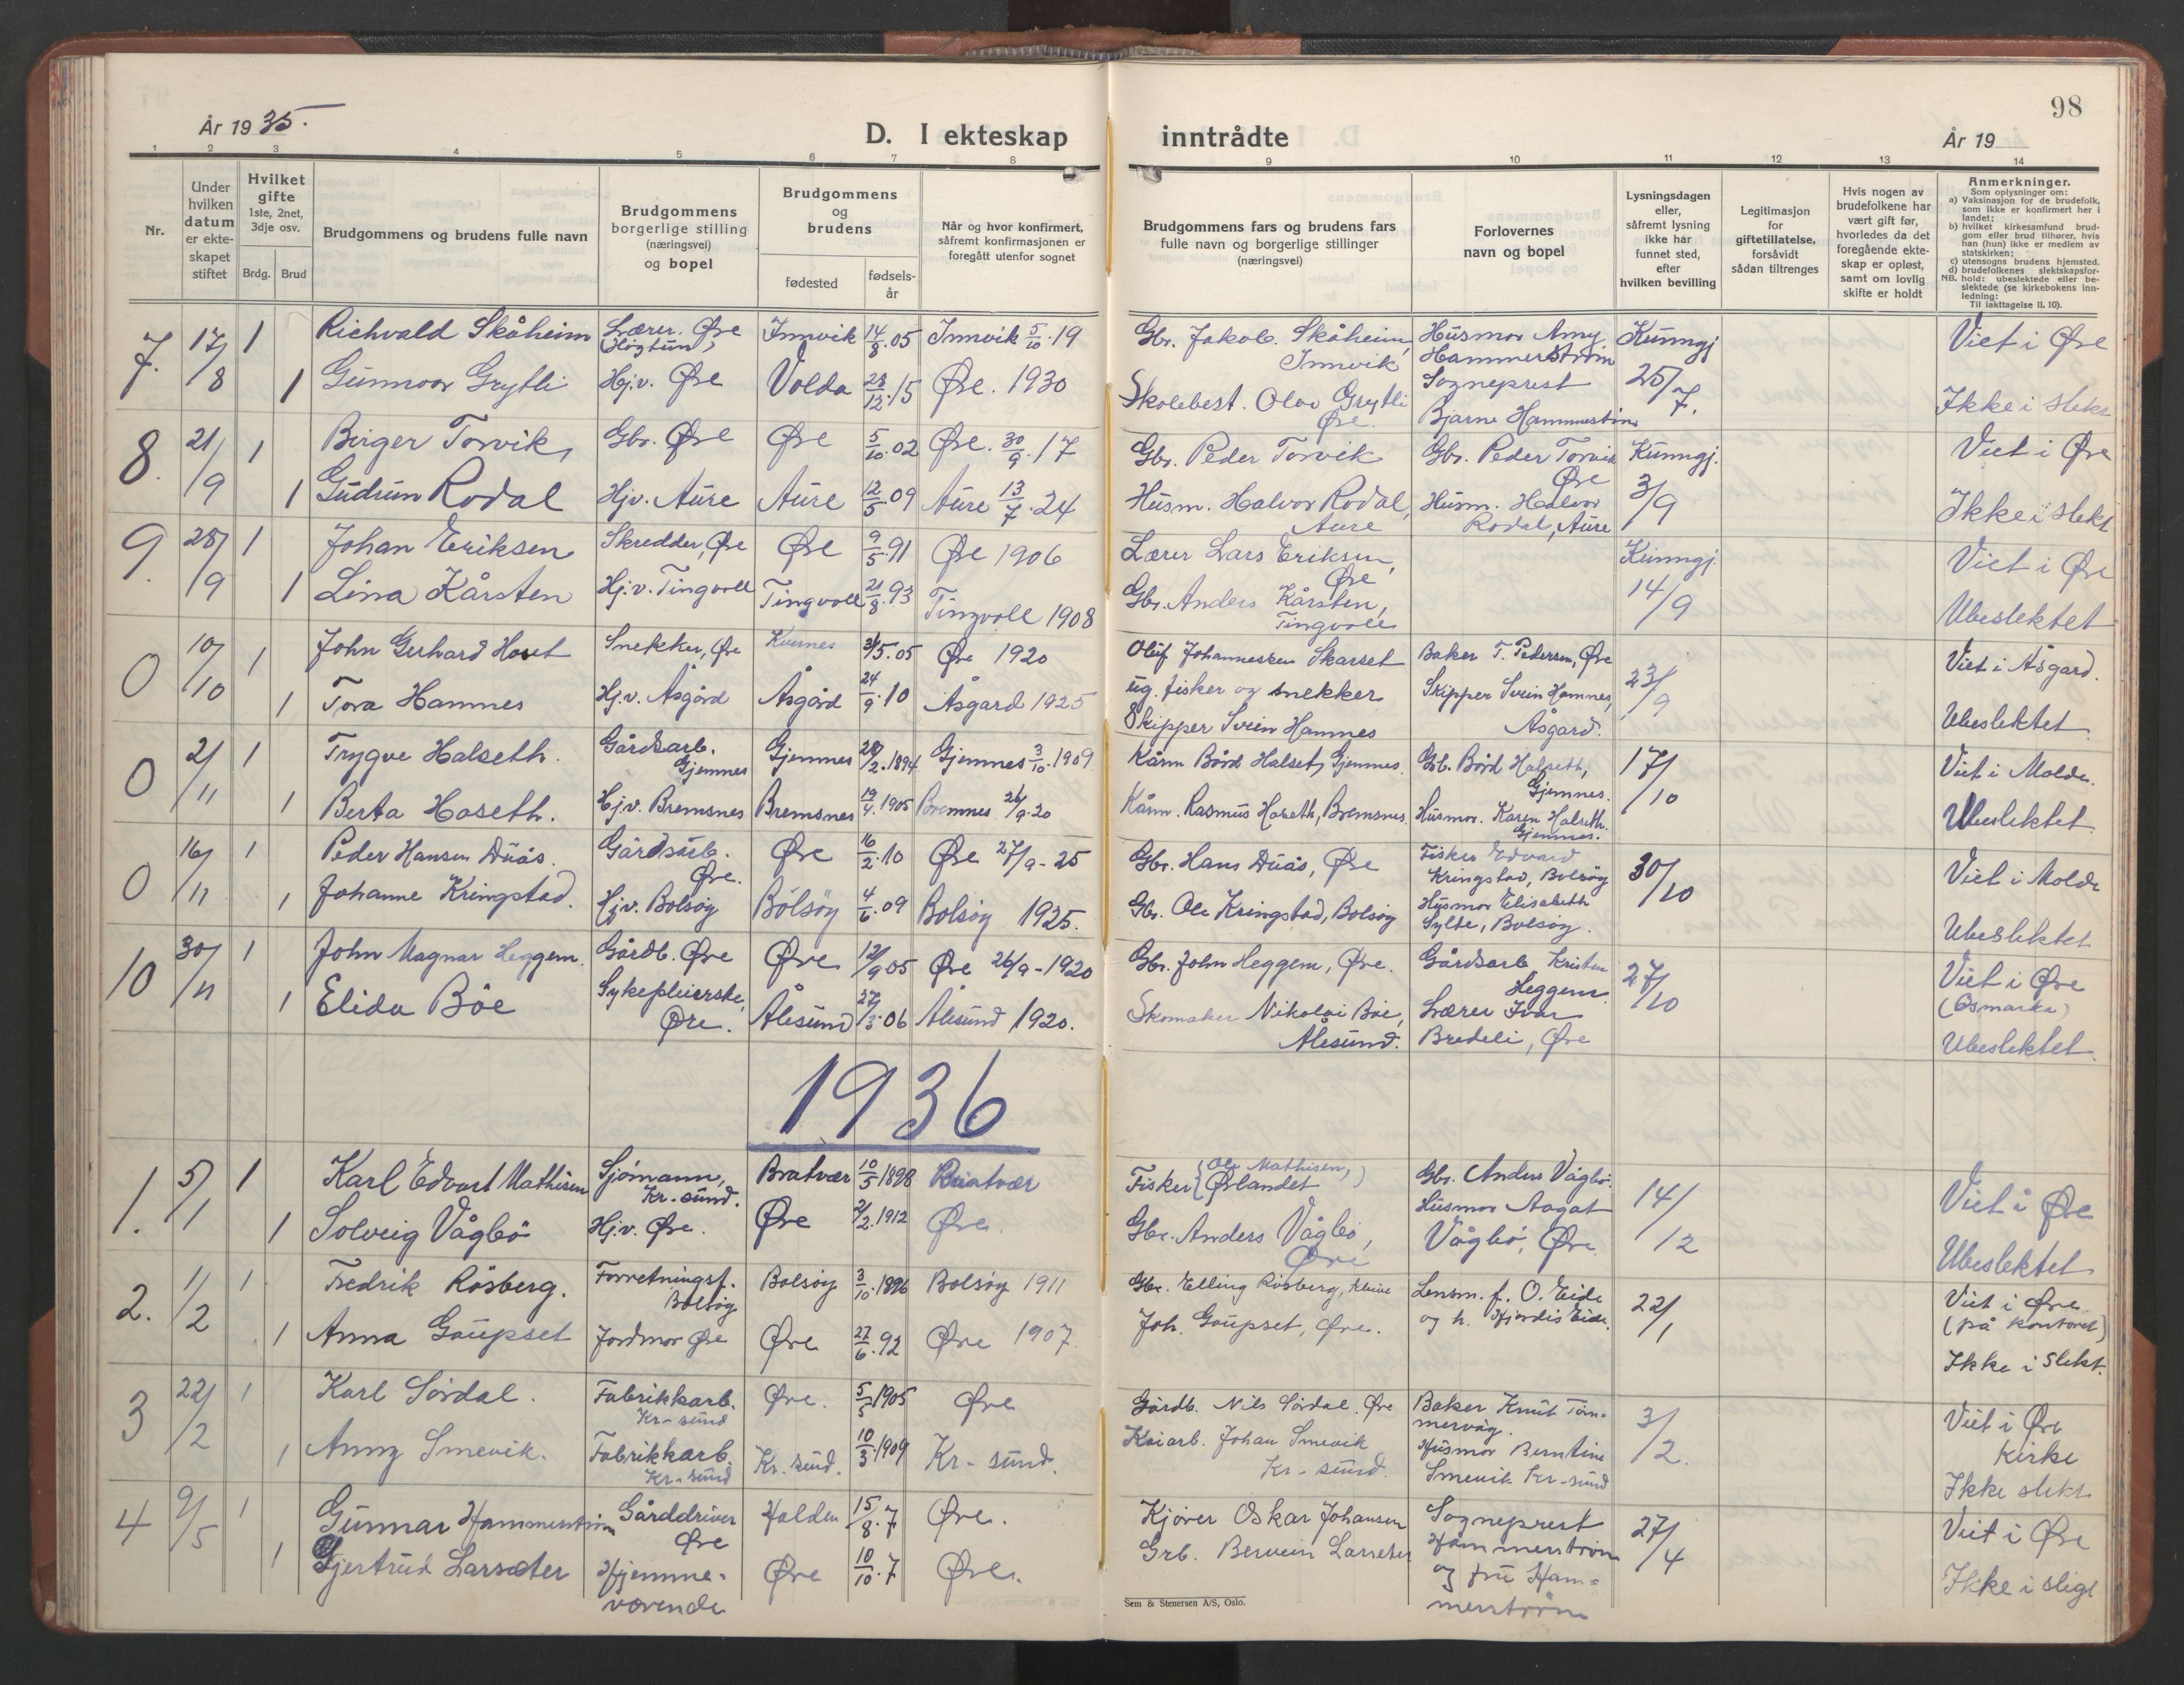 98
År 1935.
D. I ekteskap inntrådte
År 19
1 2 3 4 5 6 7 8 9 10 11 12 13 14
Nr.
Under hvilken datum er ekte-skapet stiftet
Hvilket gifte 1ste, 2net, 3dje osv.
Brdg. Brud
Brudgommens og brudens fulle navn
Brudgommens borgerlige stilling (næringsvei) og bopel
Brudgommens og brudens
fødested
fødsels-år
Når og hvor konfirmert, såfremt konfirmasjonen er foregått utenfor sognet
Brudgommens fars og brudens fars fulle navn og borgerlige stillinger (næringsvei)
Forlovernes navn og bopel
Lysningsdagen eller, såfremt lysning ikke har funnet sted, efter hvilken bevilling
Legitimasjon for giftetillatelse, forsåvidt sådan tiltrenges
Hvis nogen av brudefolkene har vært gift før, hvorledes da det foregående ekte-skap er opløst, samt om lovlig skifte er holdt
Anmerkninger.
Som oplysninger om:
a) Vaksinasjon for de brudefolk, som ikke er konfirmert her i landet;
b) hvilket kirkesamfund brud-gom eller brud tilhører, hvis han (hun) ikke er medlem av statskirken;
c) utensogns brudens hjemsted.
d) brudefolkenes slektskapsfor-hold: ubeslektede eller be-slektede (se kirkebokens inn-ledning:
NB. Til iakttagelse II. 10).
7. 17/8 1 Richvald Skåheim Lærer. Øre (Høgtun) Innvik 14/8.05 Innvik 5/10.19 Gbr. Jakob. Skåheim, Innvik Husmor Amy Hammerstrøm Kunngj Viet i Øre
1 Gunnvor Grytli Hj.v. Øre Volda 28/12.15 Øre. 1930 Skolebest. Olav Grytli Øre. Sogneprest Bjarne Hammerstrøm 25/7. Ikke i slekt
8. 21/9 1 Birger Torvik, Gbr. Øre Øre 5/10.02 Øre. 30/9.17 Gbr. Peder Torvik Gbr. Peder Torvik Øre Kunngj. Viet i Øre
1 Gudrun Rodal Hjv. Aure Aure 12/5.09 Aure 13/7.24 Husm. Halvor Rodal, Aure Husm. Halvor Rodal, Aure 3/9 Ikke i slekt
9. 28/9 1 Johan Eriksen Skredder, Øre Øre 9/5.91 Øre 1906 Lærer Lars Eriksen, Øre Kunngj. Viet i Øre
1 Lina Kårsten Hj.v. Tingvoll Tingvoll 21/8.93 Tingvoll 1908 Gbr. Anders Kårsten, Tingvoll 14/9 Ubeslektet
0 10/10 1 John Gerhard Hoset Snekker, Øre Kvernes 5.05 Øre 1920 Oluf Johannessen Skarset ug. fisker og snekker Baker T. Pedersen, Øre 23/9 Viet i Åsgard.
1 Tora Hamnes Hj.v. Åsgård Åsgård 24/9.10 Åsgard 1925 Skipper Svein Hamnes Skipper Svein Hamnes, Åsgard. Ubeslektet
0 2/11 1 Trygve Halseth. Gårdsarb. Gjemnes Gjemnes 28/2.1894 Gjemnes 3/10.1909 Kårm Bård Halset, Gjemnes. Gb. Bård Halseth, Gjemnes. 17/10 Viet i Molde.
1 Berta Haseth. Hj.v. Bremsnes Bremsnes 19/4.1905 Bremnes 26/9.20 Kårm. Rasmus Haseth, Bremsnes. Husmor. Karen Halseth. Gjemnes. Ubeslektet
0 16/11 1 Peder Hansen Duås. Gårdsarb. Øre. Øre 16/2.10 Øre 27/9-25 Gbr. Hans Duås, Øre Fisker Edvard Kringstad, Bolsøy 30/10 Viet i Molde
1 Johanne Kringstad. Hj.v. Bolsøy Bolsøy 4/6.09 Bolsøy 1925. Gbr. Ole Kringstad, Bolsøy Husmor Elisabeth Sylte, Bolsøy. Ubeslektet
10 30/11 1 John Magnar Heggem. Gårdb. Øre Øre 12/9.05 Øre 26/9-1920 Gbr. John Heggem, Øre. Gårdsarb Kristen Heggem 27/10 Viet i Øre (Osmarka)
1 Elida Böe Sykepleierske, Øre. Ålesund 27/3.06 Ålesund 1920. Skomaker Nikolai Böe, Ålesund. Lærer Ivar Bredeli, Øre Ubeslektet
1936
1. 5/1 1 Karl Edvart Mathisen Sjömann, Kr.-sund. Bratvær 10/5 1898 Bratvær Fisker (Ole Mathisen,) Ørlandet Gbr. Anders Vågbö. 14/12 Viet i Øre
1 Solveig Vågbö Hj.v. Øre. Øre 21/2.1912 Øre. Gbr. Anders Vågbö, Øre Husmor Aagot Vågbö, Øre. Ubeslektet
2. 1/2 1 Fredrik Rösberg. Forretningsf. Bolsøy Bolsøy 3/10.1896 Bolsøy 1911 Gbr. Elling Rösberg, Kleive Lensm. f. O. Eide 22/1 Viet i Øre (på kontoret)
1 Anna Gaupset Jordmor Øre Øre 27/6.92 Øre 1907. Joh. Gaupset, Øre. og h. Hjördis Eide. Ikke i slekt.
3 22/2 1 Karl Sördal. Fabrikkarb. Kr-sund Øre. 5/5 1905 Øre Gårdb. Nils Sördal. Øre Baker Knut Töm-mervåg. 3/2. Viet i Øre kirke
1 Anny Smevik. Fabrikkarb. Kr-sund Kr.sund. 10/3 1909 Kr-sund. Kaiarb. Johan Smevik Kr-sund. Husmor Berntine Smevik Kr-sund Ikke slekt
4 9/5 1 Gunnar Hammerström Gårddriver Øre Halden 15/8.7 Øre. Kjörer Oskar Johansen Sogneprest Hammerström 27/4 Viet i Øre
1 Gjertrud Larsæter Hjemme-værende Øre 10/10.7 Øre. Grb. Larseter og fru Ham-merström Ikke i sligt
Sem & Stenersen A/S, Oslo.